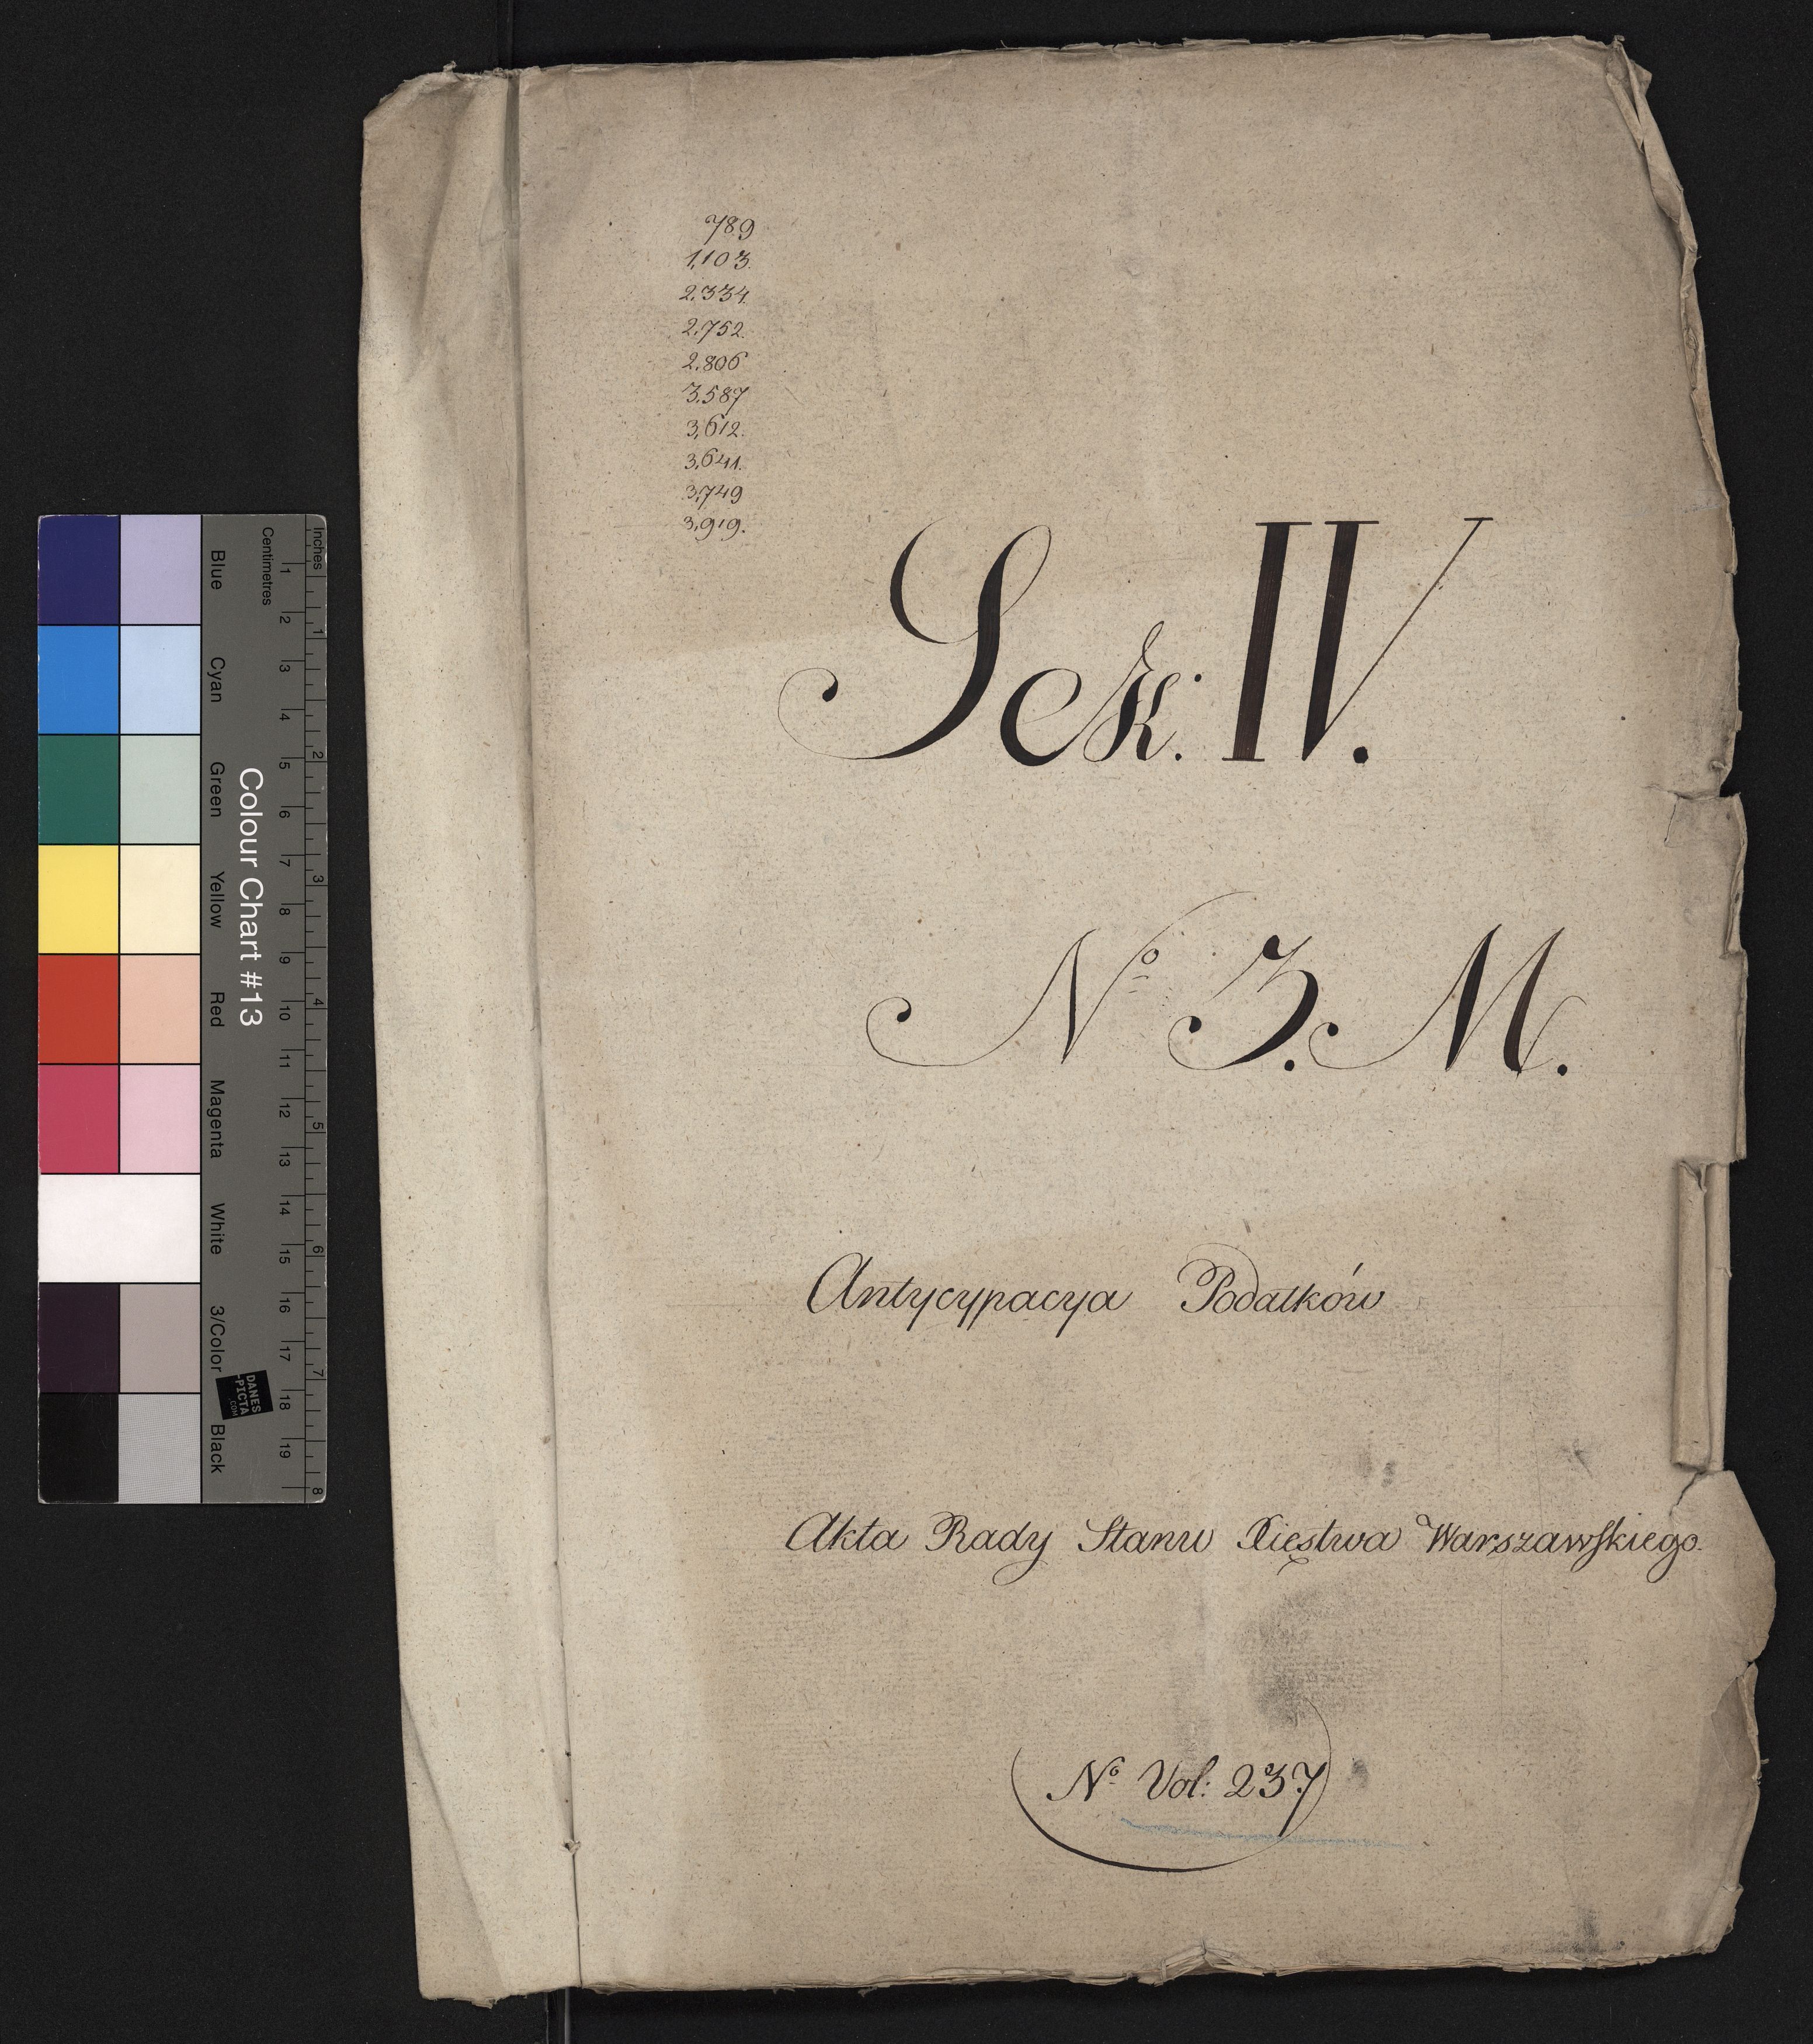 789
1,103.
2.334.
2.752.
2.806
3.587
3,612.
3.641.
3,749
3,919.
Sek: IV.
Nº 3. M.
Antycypacya Podatków
Akta Rady Stanu Xięstwa Warszawskiego.
Nº Vol: 237
Inches
Centimetres
1 2 3 4 5 6 7 8 9 10 11 12 13 14 15 16 17 18 19
1 2 3 4 5 6 7 8
Colour Chart #13
Blue
Cyan
Green
Yellow
Red
Magenta
White
3/Color
Black
DANES
-PICTA
.COM